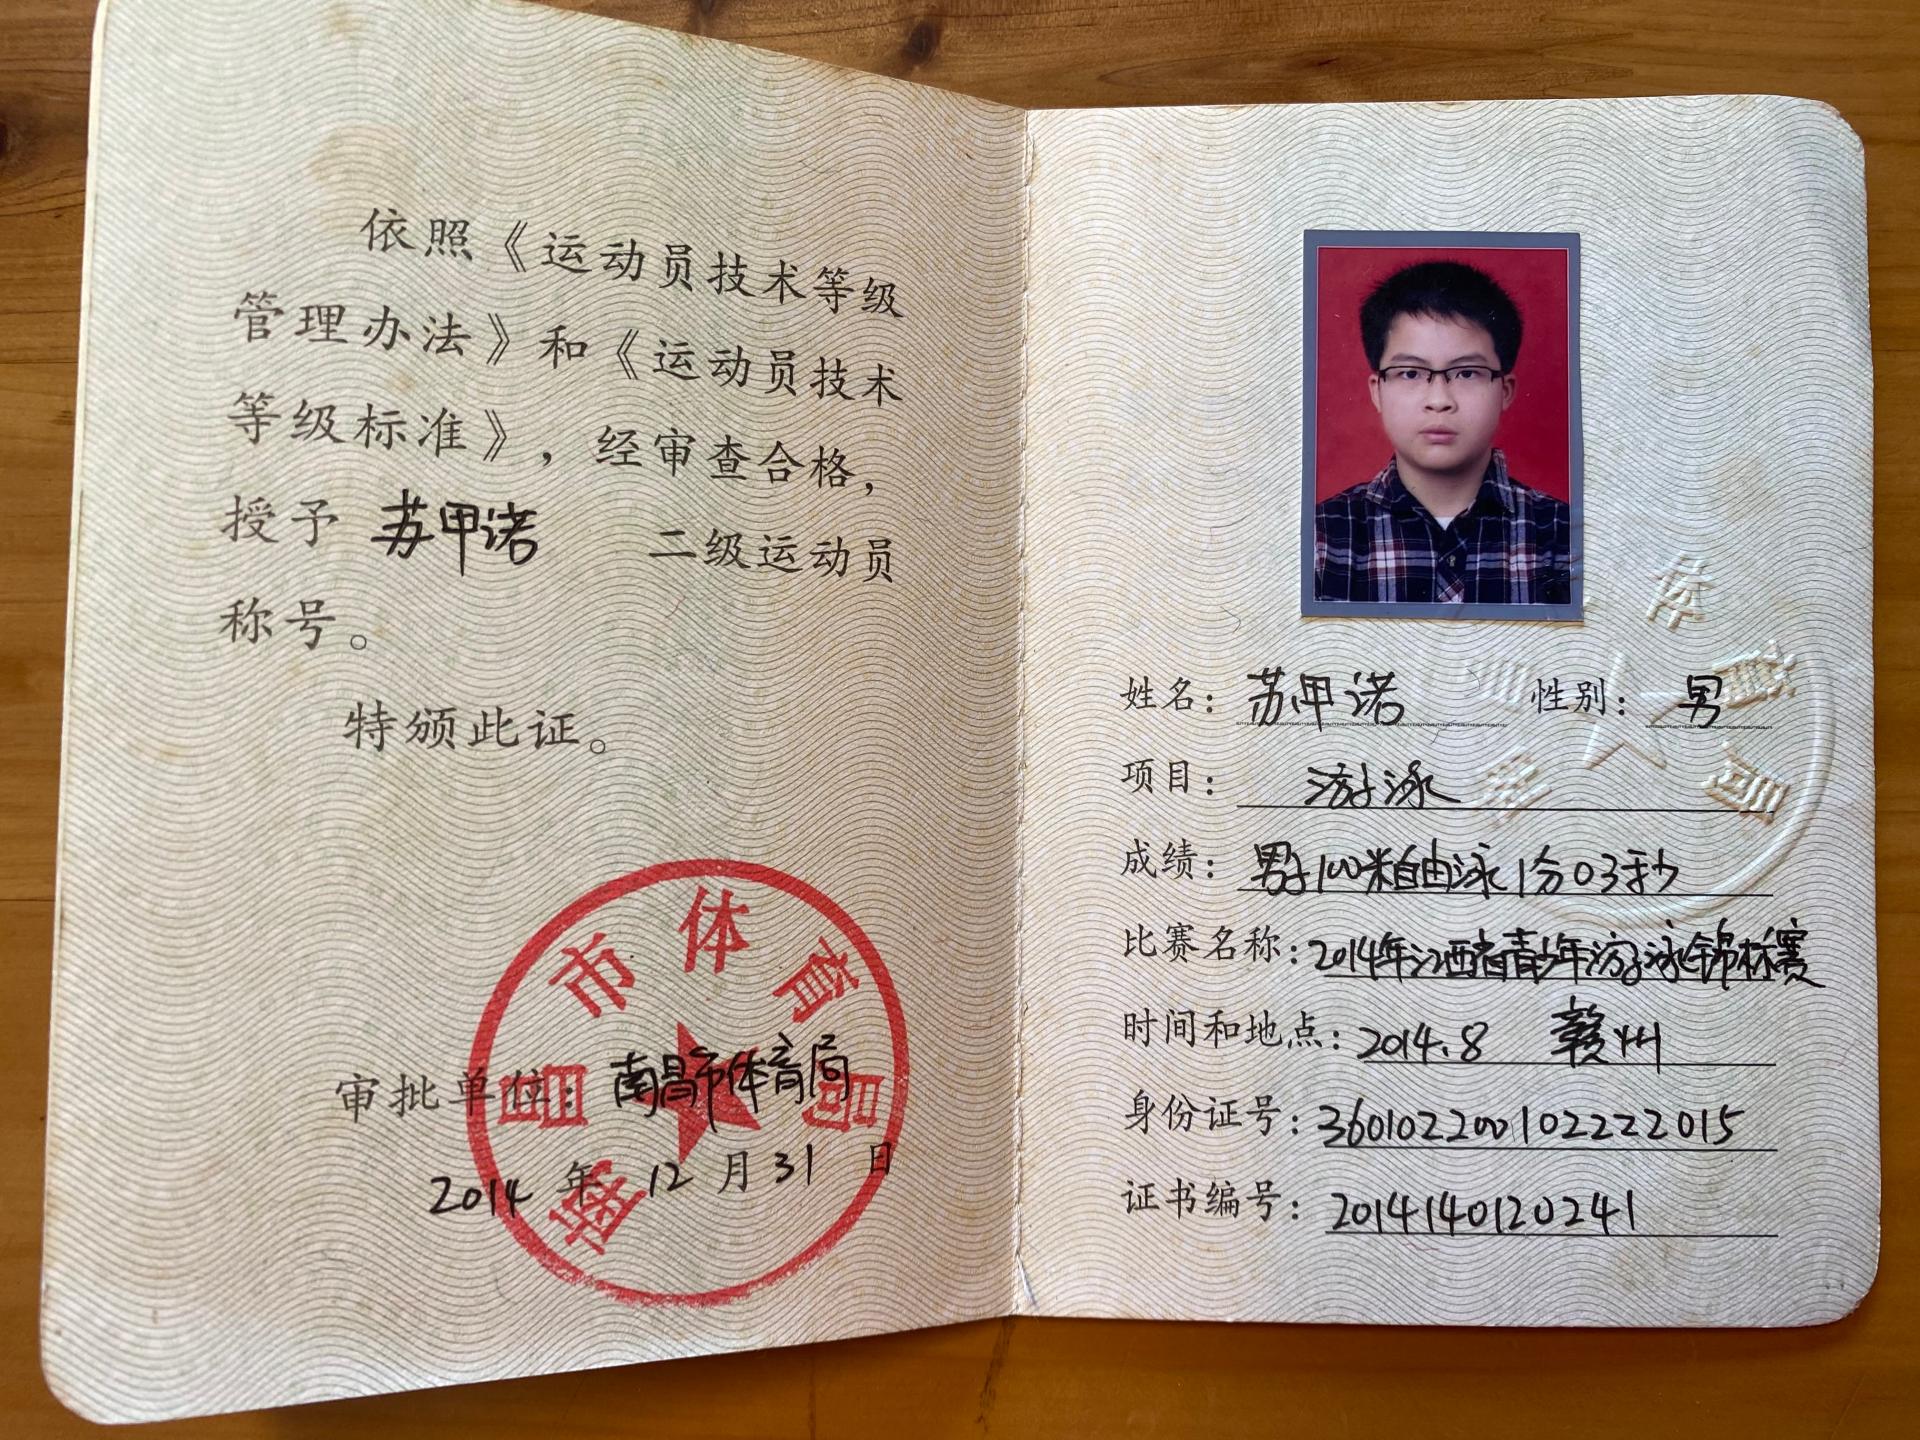 依照《运动员技术等级
管理办法》和《运动员技术
等级标准》，经审查合格，
授予 苏甲诺 二级运动员
称号。
特颁此证。
南昌市体育局
审批单位：南昌市体育局
2014 年 12 月 31 日
姓名：苏甲诺 性别：男
项目：游泳
成绩：男子100米自由泳1分03秒
比赛名称：2014年江西省青少年游泳锦标赛
时间和地点：2014.8 赣州
身份证号：360102200102222015
证书编号：2014140120241